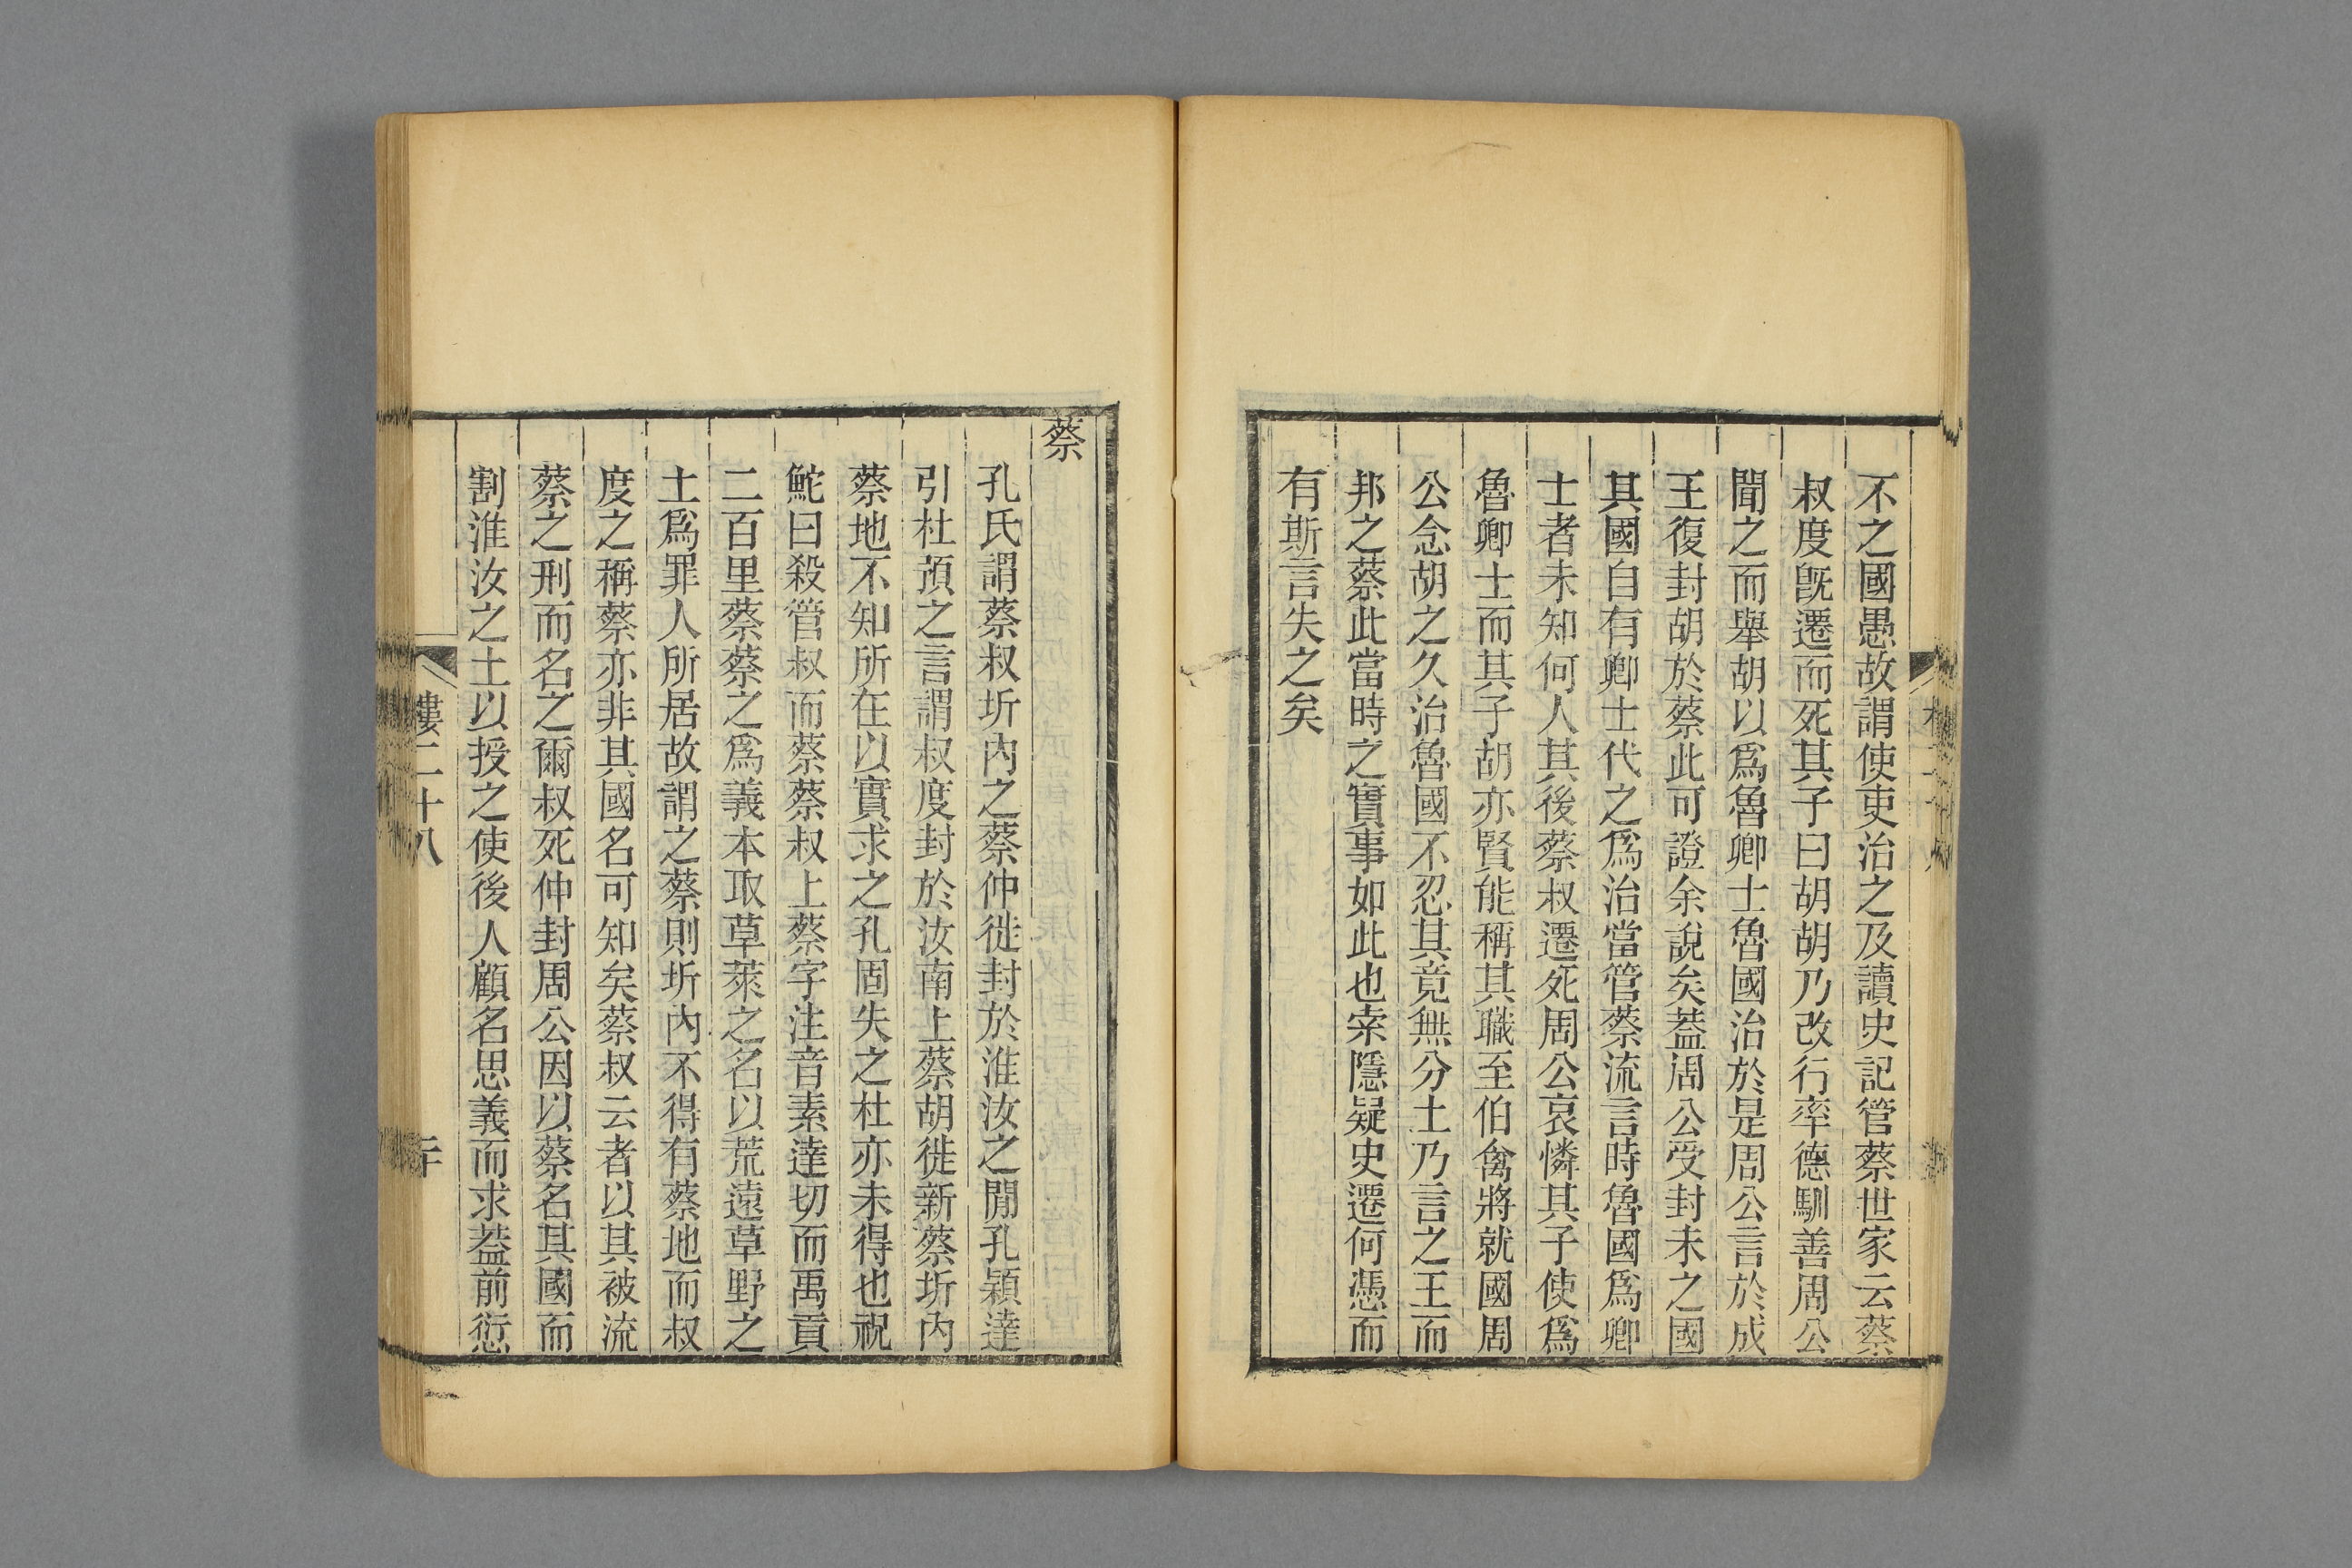 不之國愚故謂使吏治之及讀史記管蔡世家云蔡
叔度旣遷而死其子曰胡胡乃改行率德馴善周公
聞之而舉胡以爲魯卿士魯國治於是周公言於成
王復封胡於蔡此可證余說矣葢周公受封未之國
其國自有卿士代之爲治當管蔡流言時魯國爲卿
士者未知何人其後蔡叔遷死周公哀憐其子使爲
魯卿士而其子胡亦賢能稱其職至伯禽將就國周
公念胡之久治魯國不忍其竟無分土乃言之王而
邦之蔡此當時之實事如此也索隱疑史遷何憑而
有斯言失之矣
蔡
孔氏謂蔡叔圻內之蔡仲徙封於淮汝之閒孔穎達
引杜預之言謂叔度封於汝南上蔡胡徙新蔡圻內
蔡地不知所在以實求之孔固失之杜亦未得也祝
鮀曰殺管叔而蔡蔡叔上蔡字注音素達切而禹貢
二百里蔡蔡之爲義本取草萊之名以荒遠草野之
土爲罪人所居故謂之蔡則圻內不得有蔡地而叔
度之稱蔡亦非其國名可知矣蔡叔云者以其被流
蔡之刑而名之爾叔死仲封周公因以蔡名其國而
割淮汝之土以授之使後人顧名思義而求葢前愆
二十八
二十